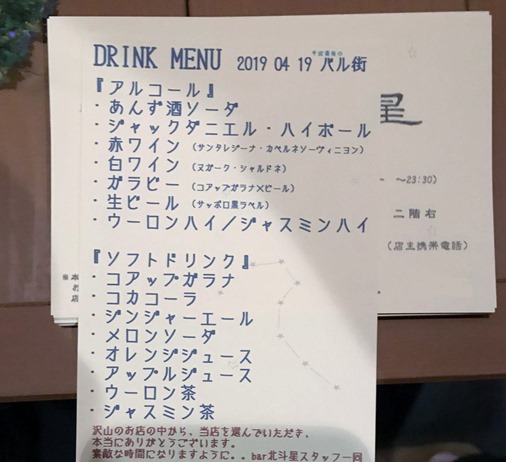 DRINK MENU 2019 04 19 バル街
『アルコール』
・あんず酒ソーダ
・ジャックダニエル・ハイボール
・赤ワイン(サンタレジーナ・カベルネソーヴィニヨン)
・白ワイン(ヌガーク・シャルドネ)
・ガラビー(コアップガラナ×ビール)
・生ビール(サッポロ黒ラベル)
・ウーロンハイ/ジャスミンハイ
『ソフトドリンク』
・コアップガラナ
・コカコーラ
・ジンジャーエール
・メロンソーダ
・オレンジジュース
・アップルジュース
・ウーロン茶
・ジャスミン茶
沢山のお店の中から、当店を選んでいただき、
本当にありがとうございます。
素敵な時間になりますように。。bar北斗星スタッフ一同
星
～23:30)
二階右
(店主携帯電話)
※本
お
店